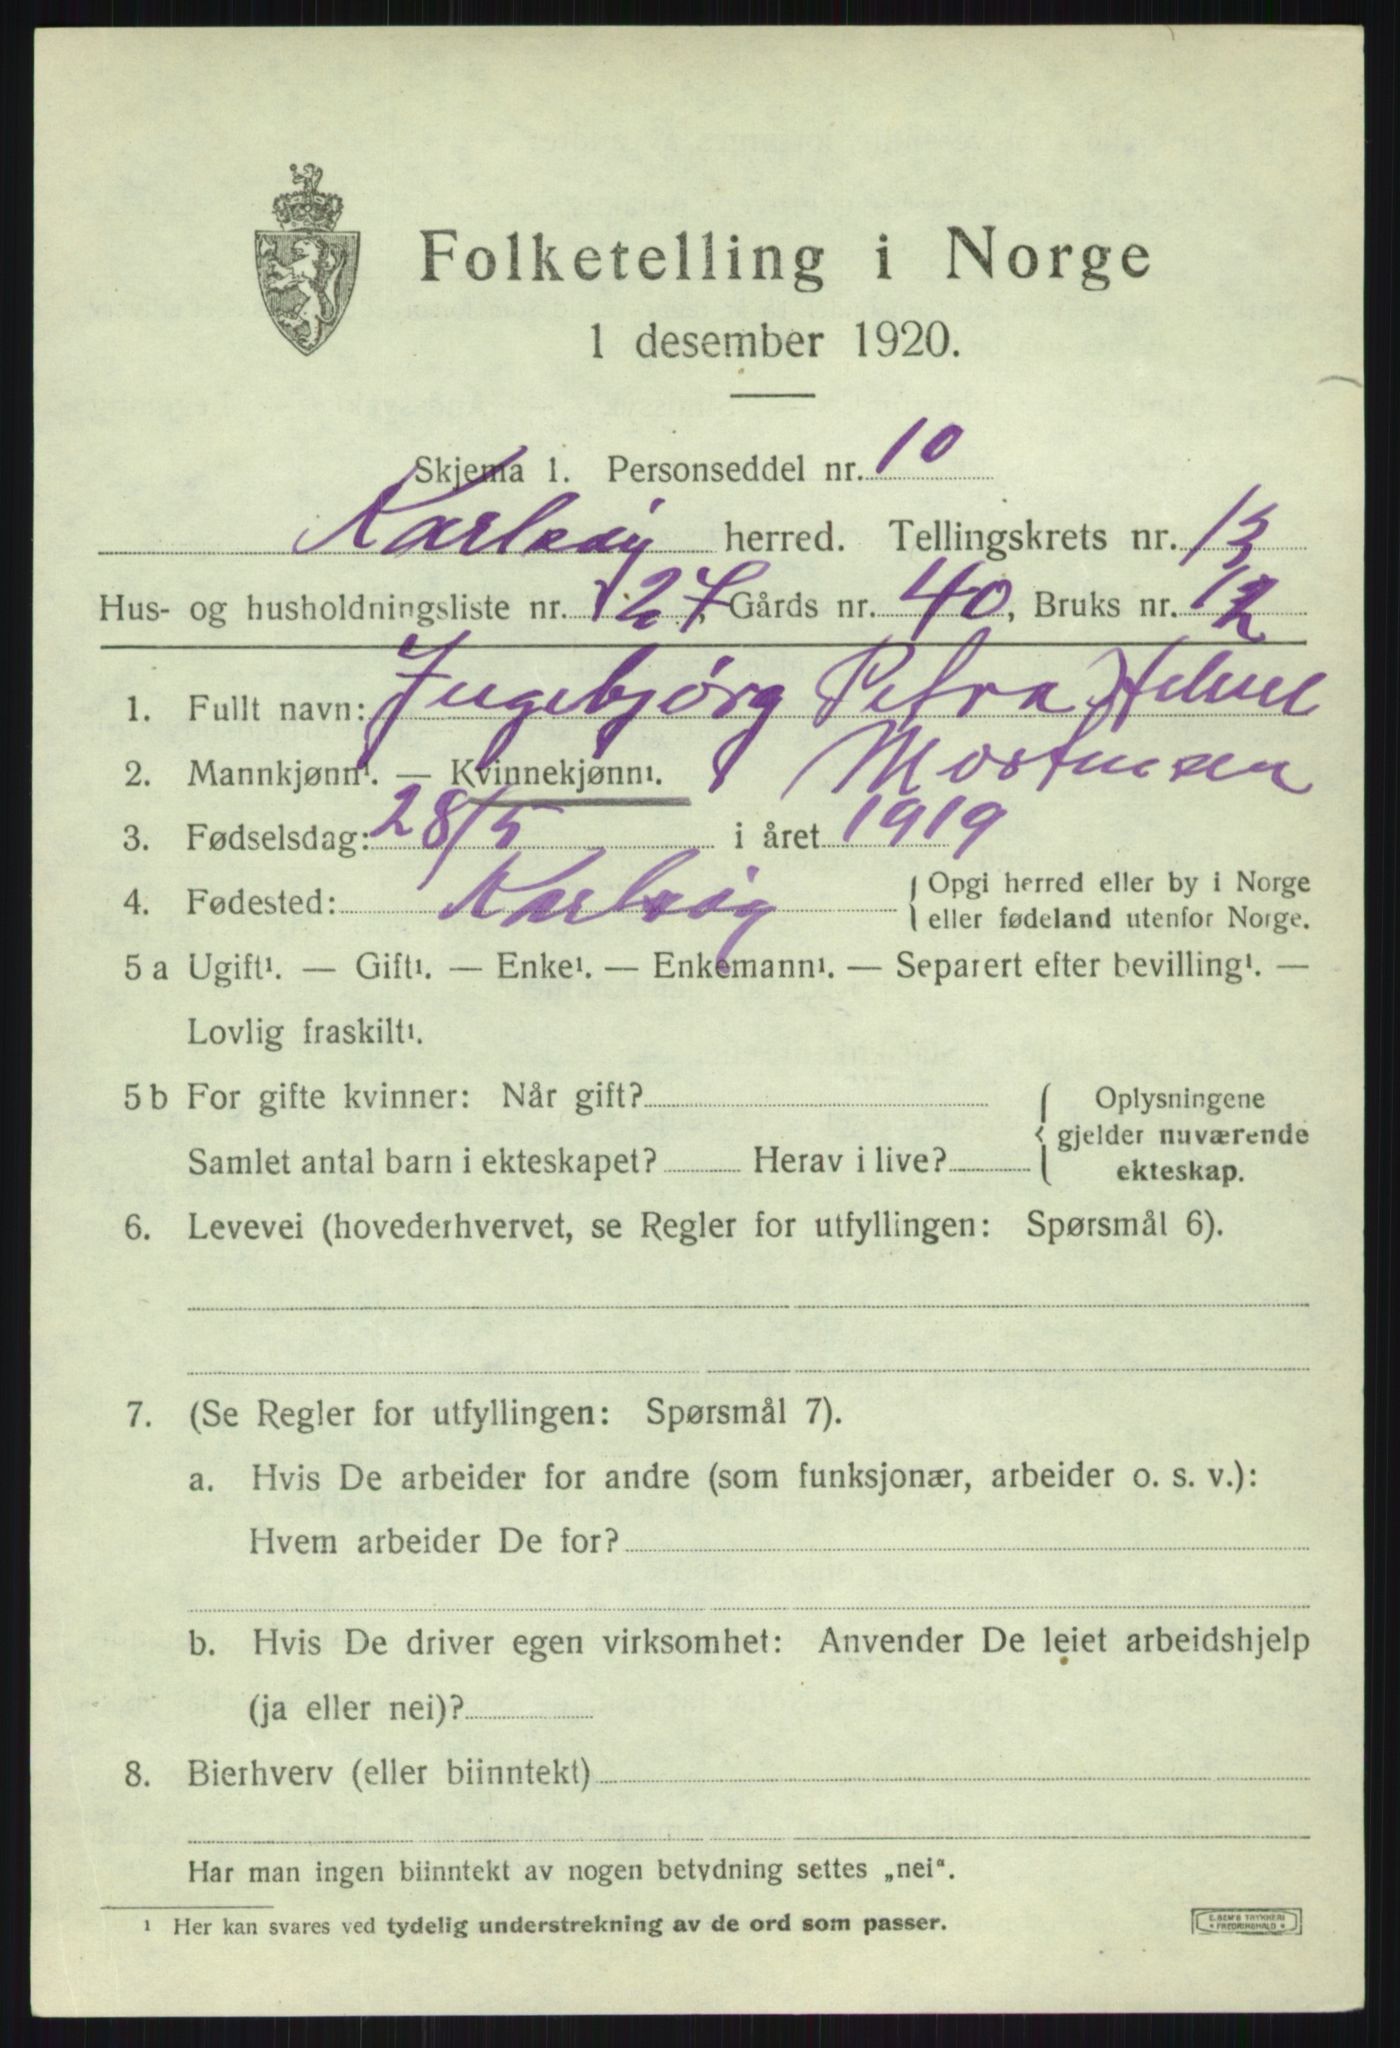 Folketelling i Norge
1 desember 1920.
Skjema 1. Personseddel nr. 10
Karlsøy herred. Tellingskrets nr. 13
Hus- og husholdningsliste nr. 127, Gårds nr. 40, Bruks nr. 12
1. Fullt navn: Ingebjørg Petra
2. Mannkjønn¹. — Kvinnekjønn¹. Mortensen
3. Fødselsdag: 28/5 i året 1919
4. Fødested: Karlsøy { Opgi herred eller by i Norge
eller fødeland utenfor Norge.
5 a Ugift¹. — Gift¹. — Enke¹. — Enkemann¹. — Separert efter bevilling¹. —
Lovlig fraskilt¹.
5 b For gifte kvinner: Når gift? { Oplysningene
gjelder nuværende
Samlet antal barn i ekteskapet? Herav i live? ekteskap.
6. Levevei (hovederhvervet, se Regler for utfyllingen: Spørsmål 6).
7. (Se Regler for utfyllingen: Spørsmål 7).
a. Hvis De arbeider for andre (som funksjonær, arbeider o. s. v.):
Hvem arbeider De for?
b. Hvis De driver egen virksomhet: Anvender De leiet arbeidshjelp
(ja eller nei)?
8. Bierhverv (eller biinntekt)
Har man ingen biinntekt av nogen betydning settes „nei“.
¹ Her kan svares ved tydelig understrekning av de ord som passer.
E. SEM'S TRYKKERI
FREDRIKSHALD